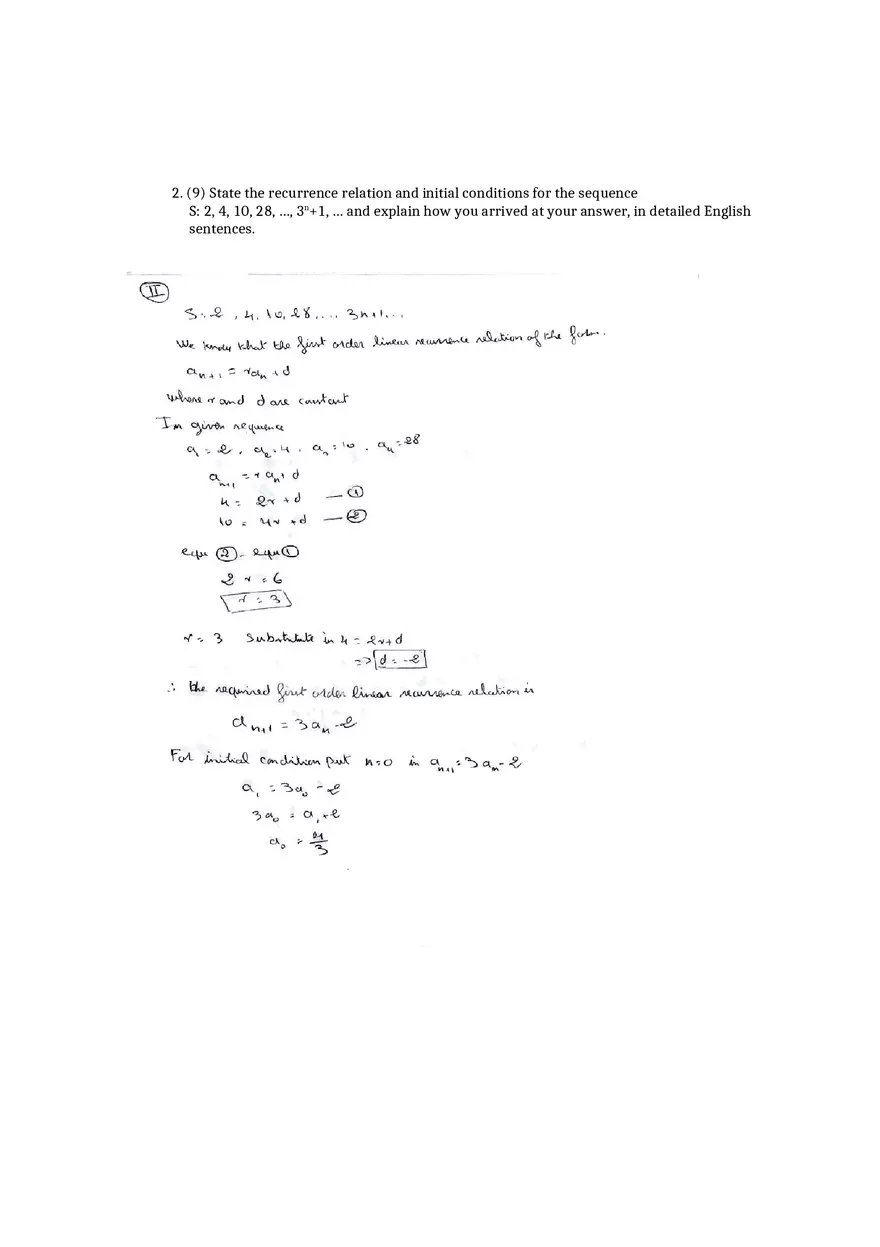 2. (9) State the recurrence relation and initial conditions for the sequence
S: 2, 4, 10, 28, ..., 3ⁿ+1, ... and explain how you arrived at your answer, in detailed English
sentences.
II
S: 2, 4, 10, 28, ... 3n+1...
We know that the first order linear recurrence relation of the form.
aₙ₊₁ = raₙ + d
where r and d are constant
In given sequence
a₁ = 2, a₂ = 4, a₃ = 10, a₄ = 28
aₙ₊₁ = r aₙ + d
4 = 2r + d — ①
10 = 4r + d — ②
equ ② - equ ①
2r = 6
r = 3
r = 3 Substitute in 4 = 2r+d
=> d = -2
∴ the required first order linear recurrence relation is
aₙ₊₁ = 3aₙ - 2
For initial condition put n=0 in aₙ₊₁ = 3aₙ - 2
a₁ = 3a₀ - 2
3a₀ = a₁ + 2
a₀ = 4/3